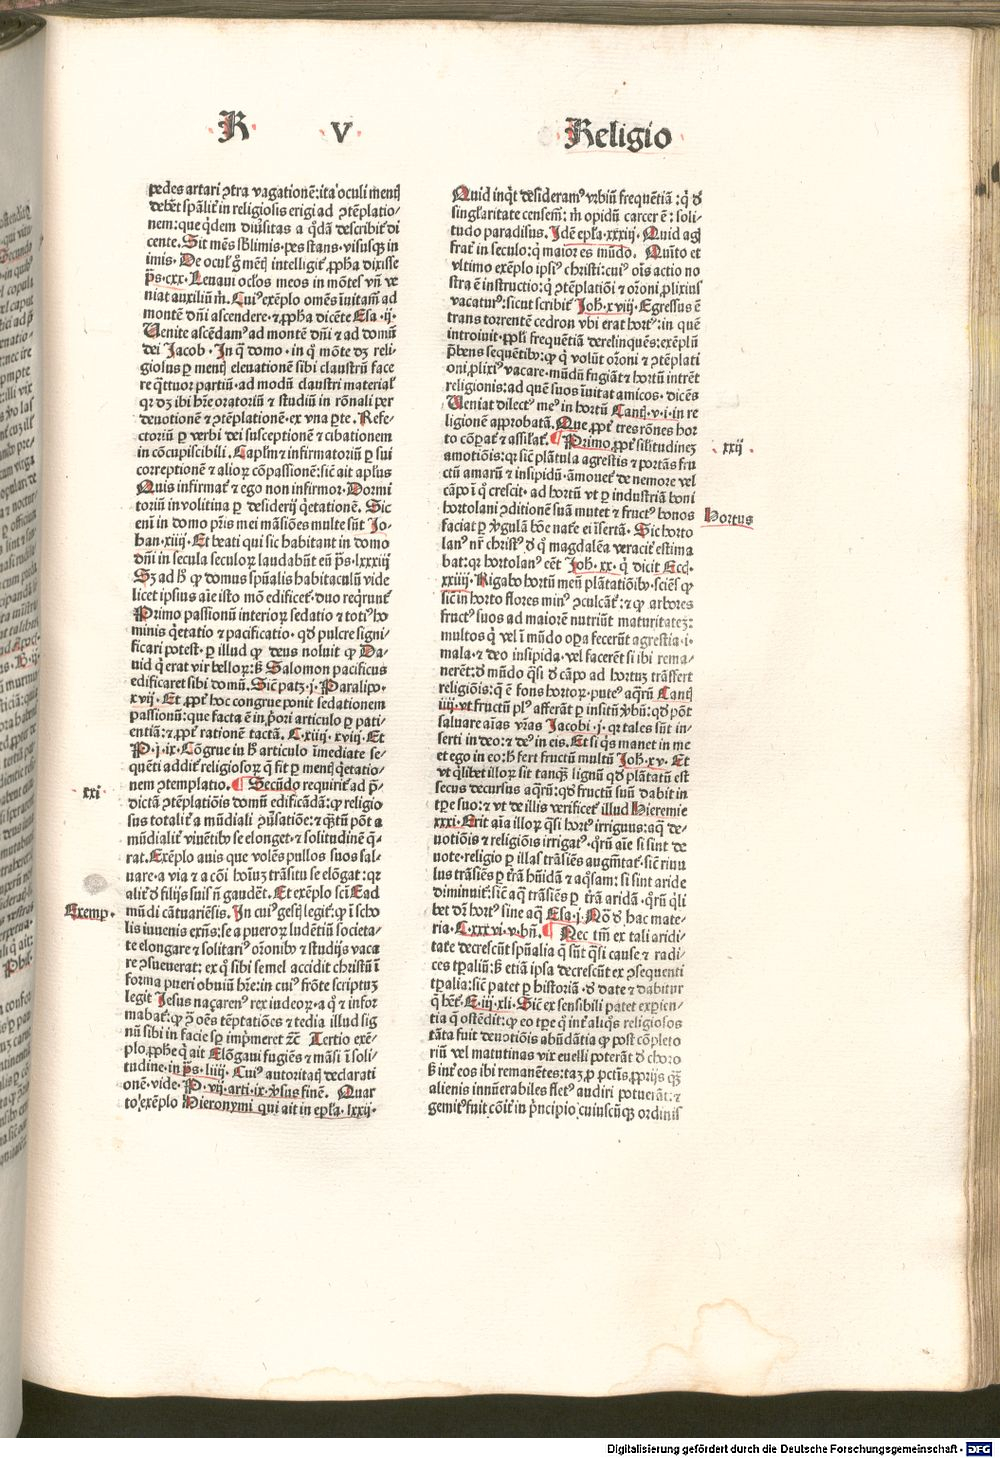 R V Religio
pedes artari ꝯtra vagationē: ita oculi mentꝭ
debēt spālit̛ in religiosis erigi ad ꝯtēplatio⸗
nem: que qͥdem diuͥsitas a qͦdā describit᷑ di
cente. Sit mēs sublimis. pes stans. visusqꝫ in
imis. De ocul᷑ gͦ mentꝭ intelligit᷑ ꝓpha dixisse
p̄s. cxx. Leuaui oclos meos in mōtes vn̄ ve
niat auxiliū m̄. Cuiꝰ exēplo omēs inuitam᷑ ad
montē dn̄i ascendere. ⁊ ꝓpha dicēte Esa. ij.
Uenite ascēdamꝰ ad montē dn̄i ⁊ ad domū
dei Jacob. In qͣ domo. in qͦ mōte dꝫ reli⸗
giosus ꝑ mentꝭ eleuationē sibi claustrū face
re qͣttuor partiū. ad modū claustri material᷑
qꝛ dꝫ ibi hr̄e oratoriū ⁊ studiū in rōnali per
deuotionē ⁊ ꝯtēplationē. ex vna ꝑte. Refe⸗
ctoriū ꝑ verbi dei susceptionē ⁊ cibationem
in cōcupiscibili. Caplm̄ ⁊ infirmatoriū ꝑ sui
correptionē ⁊ alioꝝ cōpassionē: sic̄ ait apl̄us
Quis infirmat᷑ ⁊ ego non infirmor. Dormi
toriū in volitina ꝑ desiderij qͥetationē. Sic
enī in domo pr̄is mei māsiōes multe sūt Jo⸗
han. xiiij. Et beati qui sic habitant in domo
dn̄i in secula seculoꝝ laudabūt eū p̄s. lxxxiij
Sꝫ ad hͦ ꝙ domus spūalis habitaculū vide
licet ipsius aīe isto mō edificet᷑. duo reqͥrunt᷑
Primo passionū interioꝝ sedatio ⁊ totiꝰ ho
minis qͥetatio ⁊ pacificatio. qd̄ pulcre signi⸗
ficari potest. ꝑ illud ꝙ deus noluit ꝙ Da⸗
uid qͥ erat vir belloꝝ: sꝫ Salomon pacificus
edificaret sibi domū. Sic̄ patꝫ. j. Paralipo.
xvij. Et ꝓpt̛ hoc congrue ponit sedationem
passionū: que facta ē in p̛ori articulo ꝑ pati⸗
entiā: ⁊ ꝓpt̛ rationē tactā. C. xiiij. xviij. Et
P. j. ix. Cōgrue in hͦ articulo īmediate se⸗
quēti addit᷑ religiosoꝝ qͣ fit ꝑ mentꝭ qͥetatio⸗
nem ꝯtemplatio. ¶ Secūdo requirit᷑ ad p̄⸗
dictā ꝯtēplatiōis domū edificādā: ꝙ religio
sus totalit̛ a mūdiali ꝯuͥsatiōe: ⁊ qͣꝫtū pōt a
mūdialit̛ viuētibꝰ se elonget. ⁊ solitudinē q̄⸗
rat. Exēplo auis que volēs pullos suos sal⸗
uare. a via ⁊ a cōi hoīuꝫ trāsitu se elōgat: qꝛ
alit̛ d̄ filijs suis nō gaudēt. Et exēplo sci Ead
mūdi cātuariēsis. In cuiꝰ gestꝭ legit᷑: ꝙ ī scho
lis iuuenis exn̄s: se a pueroꝝ ludētiū societa⸗
te elongare ⁊ solitariꝰ oroniƀꝰ ⁊ studijs vaca
re ꝯsueuerat: ex qͦ sibi semel accidit christū ī
forma pueri obuiū hr̄e: in cuiꝰ frōte scriptuꝫ
legit Jesus naçarenꝰ rex iudeoꝝ. a qͦ ⁊ infor
mabat᷑: ꝙ ꝯ oēs tēptatiōes ⁊ tedia illud sig
nū sibi in facie sꝑ imp̛meret ⁊c̄ Tertio exē⸗
plo, ꝓphe qͥ ait Elōgaui fugiēs ⁊ māsi ī soli⸗
tudine. in p̄s. liiij. Cuiꝰ autoritatꝭ declarati
onē. vide. P. vij. arti. ix. v̛sus finē. Quar
to exēplo Hieronymi qui ait in epl̄a. lxxij.
xxi
Exemp.
Quid inqͥt desideramꝰ vrbiū frequētiā: qͥ d̄
singl̛aritate censem᷑: m̄ opidū carcer ē: soli⸗
tudo paradisus. Idē epl̄a. xxxiij. Quid agꝭ
frat̛ in seculo: qͥ maior es mūdo. Quīto et
vltimo exēplo ipsiꝰ christi: cuiꝰ oīs actio no
stra ē instructio: qͥ ꝯtēplatiōi ⁊ oroni, plixius
vacaturꝰ: sicut scribit᷑ Joh. xviij. Egressus ē
trans torrentē cedron vbi erat hortꝰ: in quē
introiuit. ppli frequētiā derelinquēs: exēplū
p̄bens sequētibꝰ: ꝙ qͥ volūt oroni ⁊ ꝯtēplati
oni, plixiꝰ vacare. mūdū fugiāt ⁊ hortū intrēt
religionis: ad quē suos īuitat amicos. dicēs
Ueniat dilectꝰ meꝰ in hortū Cantꝭ. v. i. in re
ligionē approbatā. Que ꝓpt̛ tres rōnes hor
to cōpat᷑ ⁊ assil᷑at᷑. ¶ Primo, ꝓpt̛ sil᷑itudineꝫ
amotiōis: qꝛ sic̄ plātula agrestis ⁊ portās fru
ctū amarū ⁊ insipidū. amouet᷑ de nemore vel
cāpo ī qͦ crescit. ad hortū vt ꝑ industriā boni
hortolani ꝯditionē suā mutet ⁊ fructꝰ bonos
faciat ꝑ v̛gulā bōe nat̛e ei īsertā. Sic horto
lanꝰ nr̄ christꝰ d̄ qͦ magdalēa veracit̛ estima
bat: qꝛ hortolanꝰ eēt Joh. xx. qͥ dicit Eccͥ.
xxiiij. Rigabo hortū meū plātatiōiƀꝰ. sciēs ꝙ
sic̄ in horto flores minꝰ ꝯculcāt᷑: ⁊ ꝙ arbores
fructꝰ suos ad maiorē nutriūt maturitateꝫ:
multos qͥ vel ī mūdo oꝑa fecerūt agrestia. i.
mala. ⁊ deo insipida. vel facerēt si ibi rema⸗
nerēt: d̄ mūdo qͣsi d̄ cāpo ad hortuꝫ trāsfert
religiōis: qͥ ē fons hortoꝝ. puteꝰ aqͣrū Cantꝭ
iiij. vt fructū plꝰ afferāt ꝑ insitū v̛bū: qd̄ pōt
saluare aīas vr̄as Jacobi. j. qꝛ tales sūt in⸗
serti in deo: ⁊ deꝰ in eis. Et si qͥs manet in me
et ego in eo: hͦ fert fructū multū Joh. xv. Et
vt qͥlibet illoꝝ sit tanqͣꝫ lignū qd̄ plātatū est
secus decursus aqͣrū: qd̄ fructū suū dabit in
tp̄e suo: ⁊ vt de illis verificet᷑ illud Hieremie
xxxi. Erit aīa illoꝝ qͣsi hortꝰ irriguus: aqͣ de⸗
uotiōis ⁊ religiōis irrigatꝰ. qͣrū aīe si sint de
uote. religio ꝑ illas trāsiēs augmētat᷑. sic̄ riuu
lus trāsiēs ꝑ t̛rā hūidā ⁊ aqͦsam: si sint aride
diminuit᷑: sic̄ aqͣ trāsiēs ꝑ t̛rā aridā. qͣrū qͥli
bet dr̄ hortꝰ sine aqͣ Esa. j. No d̄ hac mate⸗
ria. C. xxxvi. v. bn̄. ¶ Nec tm̄ ex tali aridi⸗
tate decrescūt spūalia qͣ sūt qͣsi cause ⁊ radi⸗
ces tꝑaliū: sꝫ etiā ipsa decrescūt ex ꝯsequenti
tꝑalia: sic̄ patet ꝑ historiā. d̄ date ⁊ dabitur
qͣ hēt᷑. E. iij. xli. Sic̄ ex sensibili patet exꝑien⸗
tia qͣ ostēdit᷑: ꝙ eo tp̄e qͦ int̛ aliqͦs religiosos
tāta fuit deuotiōis abūdātia ꝙ post cōpleto
riū vel matutinas vix euelli poterāt d̄ choro
sꝫ int̛ eos ibi remanētes: taꝫ ꝓ pctīs, ꝓprijs qͣꝫ
alienis innūerabiles fletꝰ audiri potuerāt: ⁊
gemitꝰ fuit cōit̛ in p̛ncipio cuiuscūqꝫ ordinis
xxij
Hortus
Digitalisierung gefördert durch die Deutsche Forschungsgemeinschaft - DFG